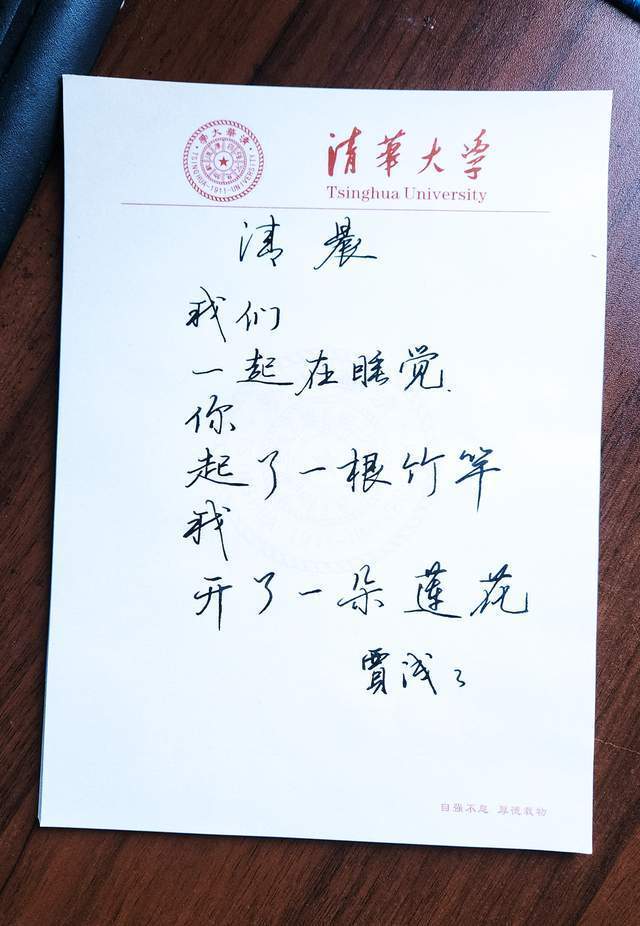 清華大學
TSINGHUA-1911-UNIVERSITY
清華大学
Tsinghua University
清晨
我们
一起在睡觉
你
起了一根竹竿
我
开了一朵莲花
贾浅々
自强不息 厚德载物